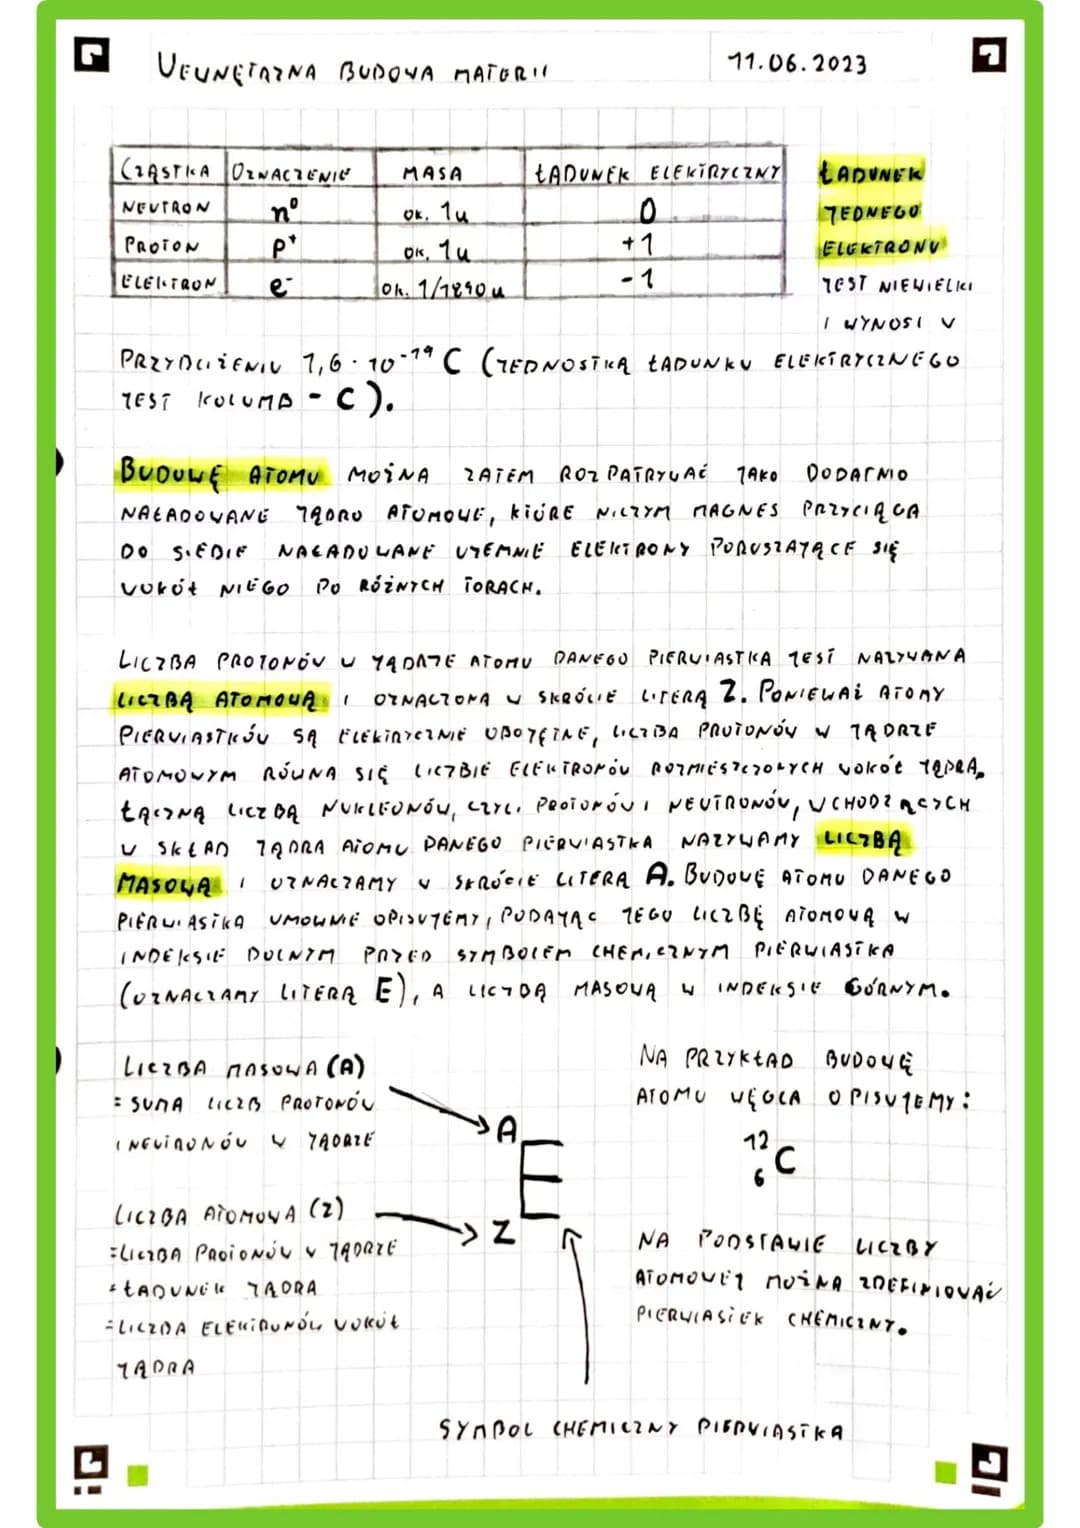 WEWNĘTRZNA BUDOWA MATERII
11.06.2023
CZĄSTKA OZNACZENIE MASA ŁADUNEK ELEKTRYCZNY
NEUTRON n⁰ OK. 1u 0
PROTON p⁺ OK. 1u +1
ELEKTRON e⁻ OK. 1/1840 u -1
ŁADUNEK
JEDNEGO
ELEKTRONU
JEST NIEWIELKI
I WYNOSI W
PRZYBLIŻENIU 1,6 · 10⁻¹⁹ C (JEDNOSTKĄ ŁADUNKU ELEKTRYCZNEGO
JEST KULUMB - C).
BUDOWĘ ATOMU MOŻNA ZATEM ROZPATRYWAĆ JAKO DODATNIO
NAŁADOWANE JĄDRO ATOMOWE, KTÓRE NICZYM MAGNES PRZYCIĄGA
DO SIEBIE NAŁADOWANE UJEMNIE ELEKTRONY PORUSZAJĄCE SIĘ
WOKÓŁ NIEGO PO RÓŻNYCH TORACH.
LICZBA PROTONÓW W JĄDRZE ATOMU DANEGO PIERWIASTKA JEST NAZYWANA
LICZBĄ ATOMOWĄ I OZNACZONA W SKRÓCIE LITERĄ Z. PONIEWAŻ ATOMY
PIERWIASTKÓW SĄ ELEKTRYCZNIE OBOJĘTNE, LICZBA PROTONÓW W JĄDRZE
ATOMOWYM RÓWNA SIĘ LICZBIE ELEKTRONÓW ROZMIESZCZONYCH WOKÓŁ JĄDRA.
ŁĄCZNĄ LICZBĄ NUKLEONÓW, CZYLI PROTONÓW I NEUTRONÓW, WCHODZĄCYCH
W SKŁAD JĄDRA ATOMU DANEGO PIERWIASTKA NAZYWAMY LICZBĄ
MASOWĄ I OZNACZAMY W SKRÓCIE LITERĄ A. BUDOWĘ ATOMU DANEGO
PIERWIASTKA UMOWNIE OPISUJEMY, PODAJĄC JEGO LICZBĘ ATOMOWĄ W
INDEKSIE DOLNYM PRZED SYMBOLEM CHEMICZNYM PIERWIASTKA
(OZNACZAMY LITERĄ E), A LICZBĄ MASOWĄ W INDEKSIE GÓRNYM.
LICZBA MASOWA (A)
= SUMA LICZB PROTONÓW
I NEUTRONÓW W JĄDRZE
LICZBA ATOMOWA (Z)
=LICZBA PROTONÓW W JĄDRZE
=ŁADUNEK JĄDRA
=LICZBA ELEKTRONÓW WOKÓŁ
JĄDRA
A
E
Z
SYMBOL CHEMICZNY PIERWIASTKA
NA PRZYKŁAD BUDOWĘ
ATOMU WĘGLA OPISUJEMY:
12
C
6
NA PODSTAWIE LICZBY
ATOMOWEJ MOŻNA ZDEFINIOWAĆ
PIERWIASTEK CHEMICZNY.